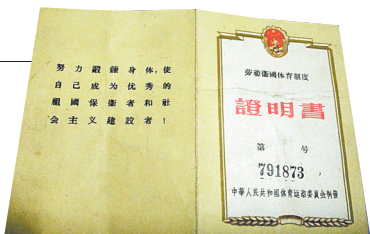 努力鍛鍊身体,使
自己成为优秀的
祖國保衛者和社
会主义建設者!
劳动衛國体育制度
證明書
第 号
791873
中華人民共和國体育运动委員会制發